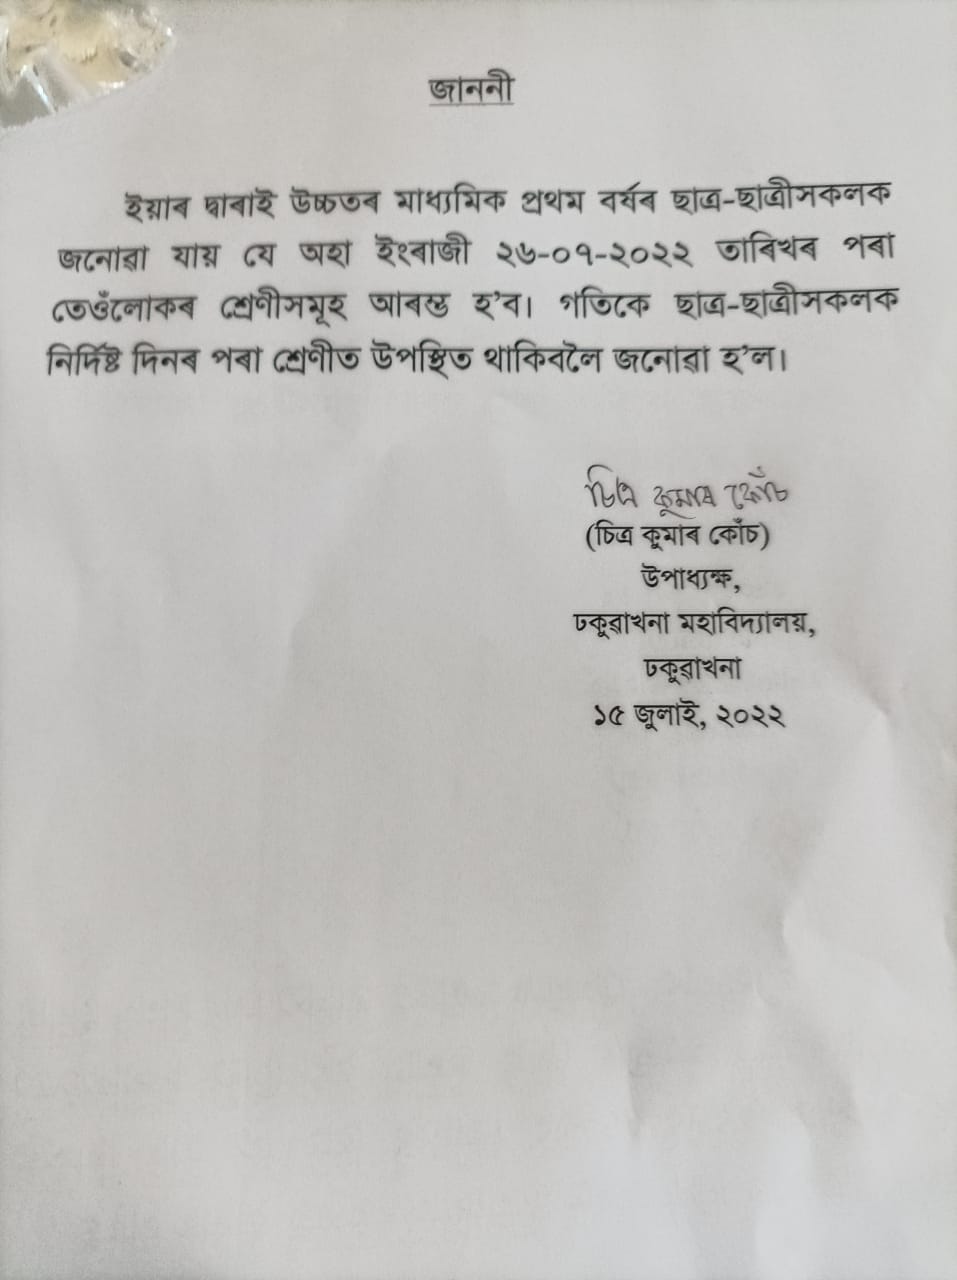 জাননী
ইয়াৰ দ্বাৰাই উচ্চতৰ মাধ্যমিক প্ৰথম বৰ্ষৰ ছাত্ৰ-ছাত্ৰীসকলক
জনোৱা যায় যে অহা ইংৰাজী ২৬-০৭-২০২২ তাৰিখৰ পৰা
তেওঁলোকৰ শ্ৰেণীসমূহ আৰম্ভ হ'ব। গতিকে ছাত্ৰ-ছাত্ৰীসকলক
নিৰ্দিষ্ট দিনৰ পৰা শ্ৰেণীত উপস্থিত থাকিবলৈ জনোৱা হ'ল।
চিত্ৰ কুমাৰ কোঁচ
(চিত্ৰ কুমাৰ কোঁচ)
উপাধ্যক্ষ,
ঢকুৱাখনা মহাবিদ্যালয়,
ঢকুৱাখনা
১৫ জুলাই, ২০২২